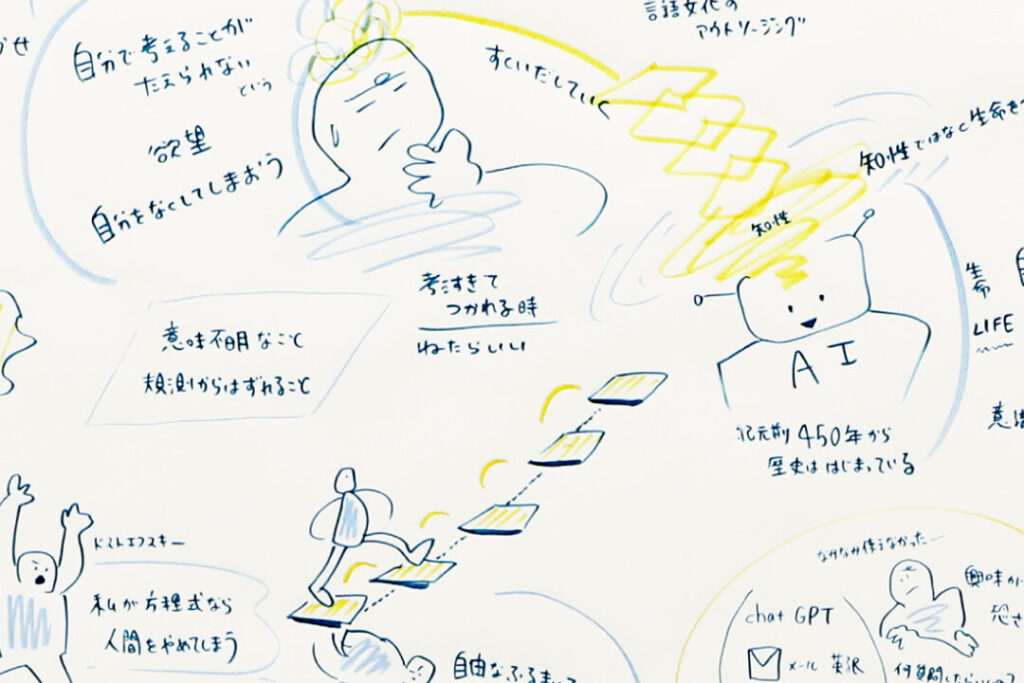 自分で考えることが
たえられない
という
欲望
自分をなくしてしまおう
言語文化の
アウトソーシング
すくいだしていく
知性ではなく生命を
知性
生命
LIFE
AI
紀元前450年から
歴史ははじまっている
考えすぎて
つかれる時
ねたらいい
意味不明なこと
規則からはずれること
ドストエフスキー
私が方程式なら
人間をやめてしまう
自由なふるまいで
なかなか使えなかった…
chat GPT
メール 英訳
興味が
恐さ
何質問したらいいの?